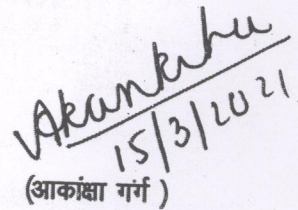 Akanksha
15/3/2021
(आकांक्षा गर्ग )